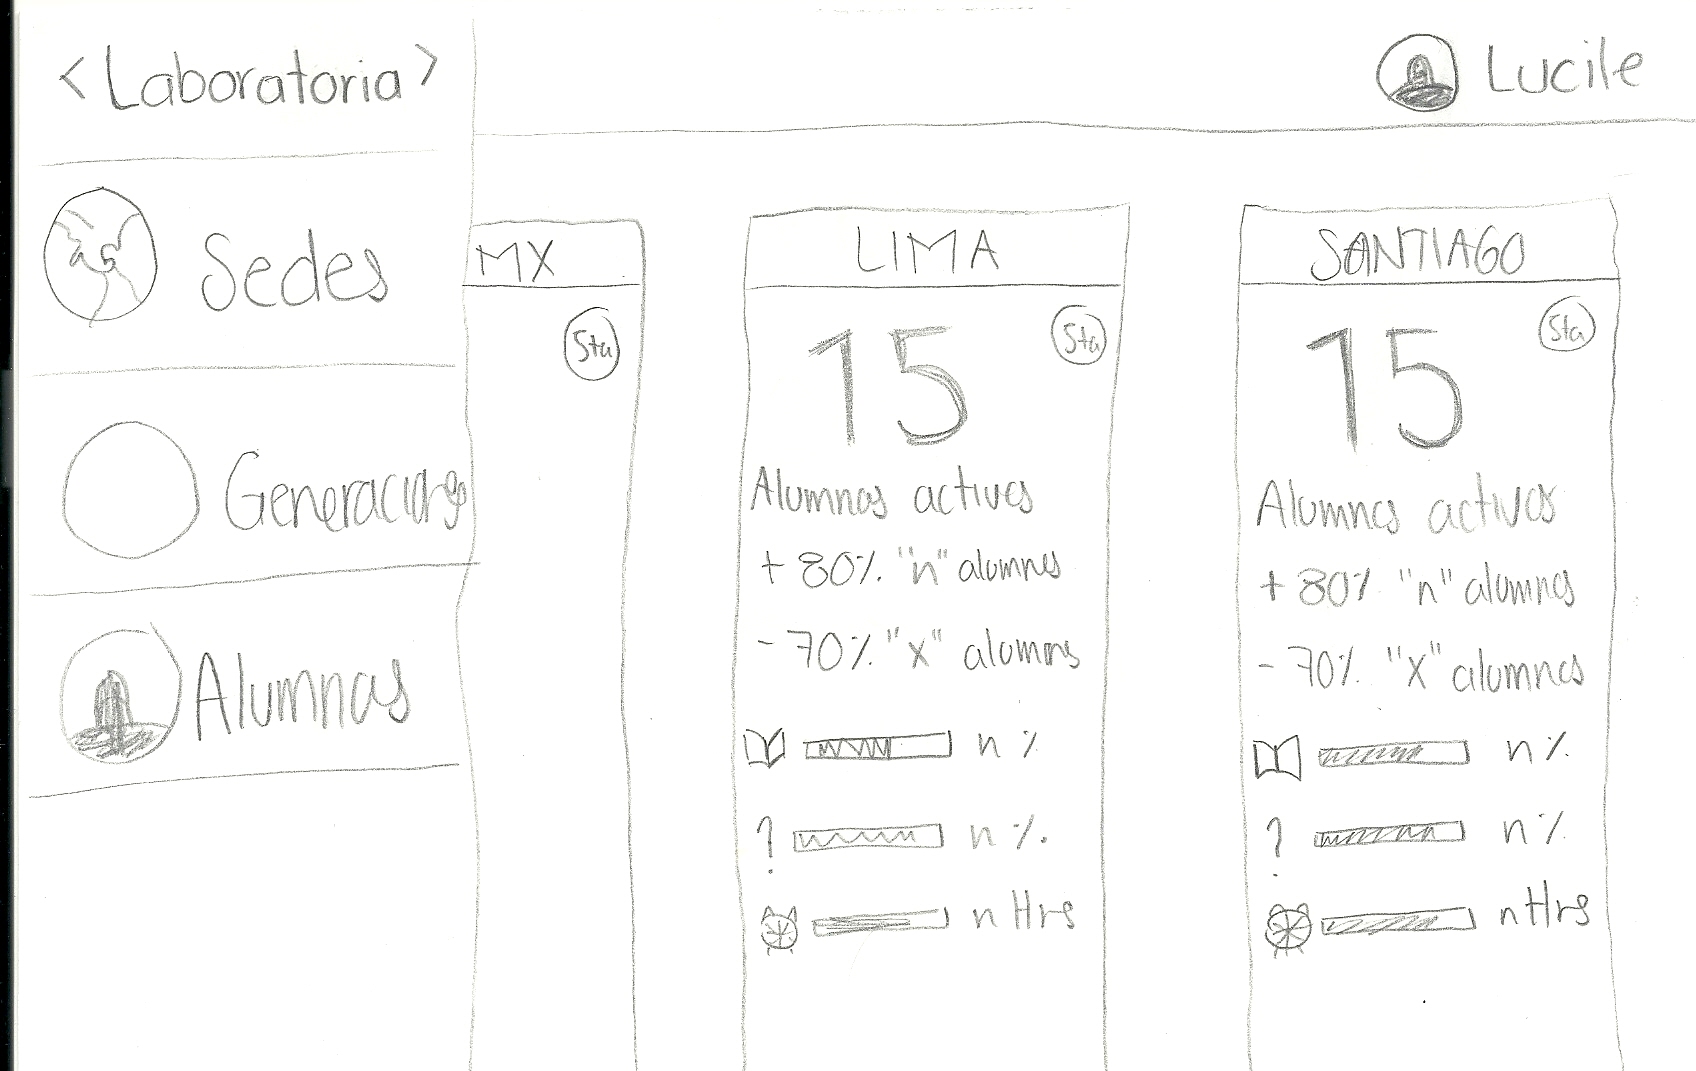 <Laboratoria>
Lucile
Sedes
Generaciones
Alumnas
MX
5ta
LIMA
5ta
15
Alumnas activas
+ 80% "n" alumnas
- 70% "x" alumnas
n %
?
n %.
n Hrs
SANTIAGO
5ta
15
Alumnas activas
+ 80% "n" alumnas
- 70% "x" alumnas
n %
?
n %
n Hrs